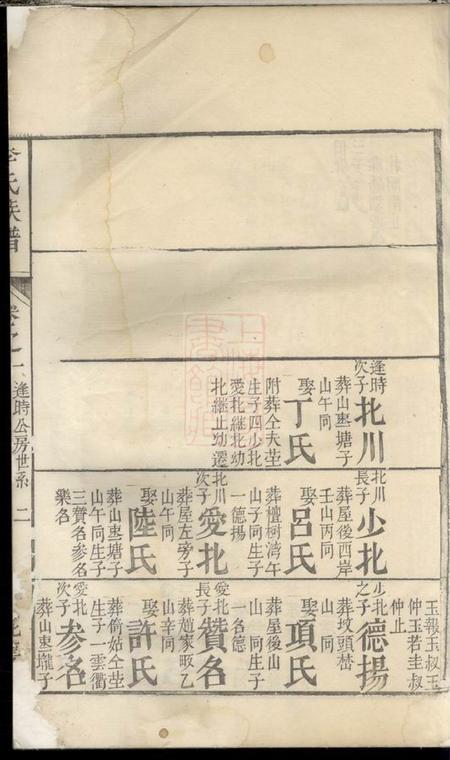 逢時
次子
北川
葬山惠塘子
山午同
娶丁氏
附葬仝夫塋
生子四少北
愛北繼北幼
北繼止幼遷
北川
長子
少北
葬屋後西岸
壬山丙同
娶呂氏
葬檀樹灣午
山子同生子
一德揚
北川
次子
愛北
葬屋左旁子
山午同
娶陸氏
葬山惠塘子
山午同生子
三贊名参名
樂名
玉報玉叔玉
仲玉若圭叔
仲止
少北
之子
德揚
葬坟頭榃
山 同
娶項氏
葬屋後山
山 同生子
一名德
愛北
長子
贊名
葬趙家畈乙
山辛同
娶許氏
葬俞姑仝塋
生子一雲衢
愛北
次子
参名
葬山惠壠子
李氏族譜
卷之一
逢時公房世系
二